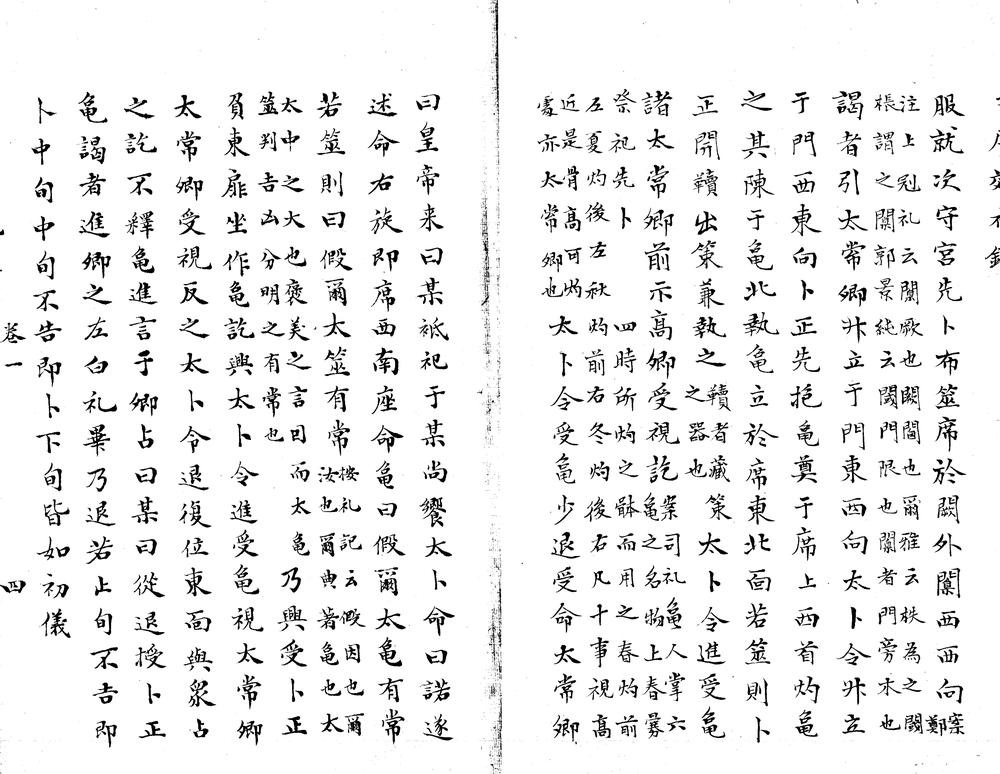 服就次守宮先卜布筮席於闕外闑西西向案鄭
注上冠礼云闑厥也闕閫也爾雅云柣為之閾
棖謂之闑郭景純云閾門限也闑者門旁木也
謁者引太常卿升立于門東西向太卜令升立
于門西東向卜正先抱龜奠于席上西首灼龜
之其陳于龜北執龜立於席東北面若筮則卜
正開韇出策兼執之韇者藏之器也策太卜令進受龜
諸太常卿前示高卿受視訖案司礼龜人掌六龜之名物上春釁
祭祀先卜四時所灼之骵而用之春灼前
左夏灼後左秋灼前右冬灼後右凡十事視高
近是骨高可灼處亦太常卿也太卜令受龜少退受命太常卿
曰皇帝来曰某祗祀于某尚饗太卜命曰諾遂
述命右旋即席西南座命龜曰假爾太龜有常
若筮則曰假爾太筮有常按礼記云假因也爾汝也爾典著龜也太
太中之大也襃美之言因而太筮判吉凶分明之有常也龜乃興受卜正
負東扉坐作龜訖興太卜令進受龜視太常卿
太常卿受視反之太卜令退復位東面與衆占
之訖不釋龜進言于卿占曰某曰從退授卜正
龜謁者進卿之左白礼畢乃退若上旬不吉即
卜中旬中旬不告即卜下旬皆如初儀
卷一 四